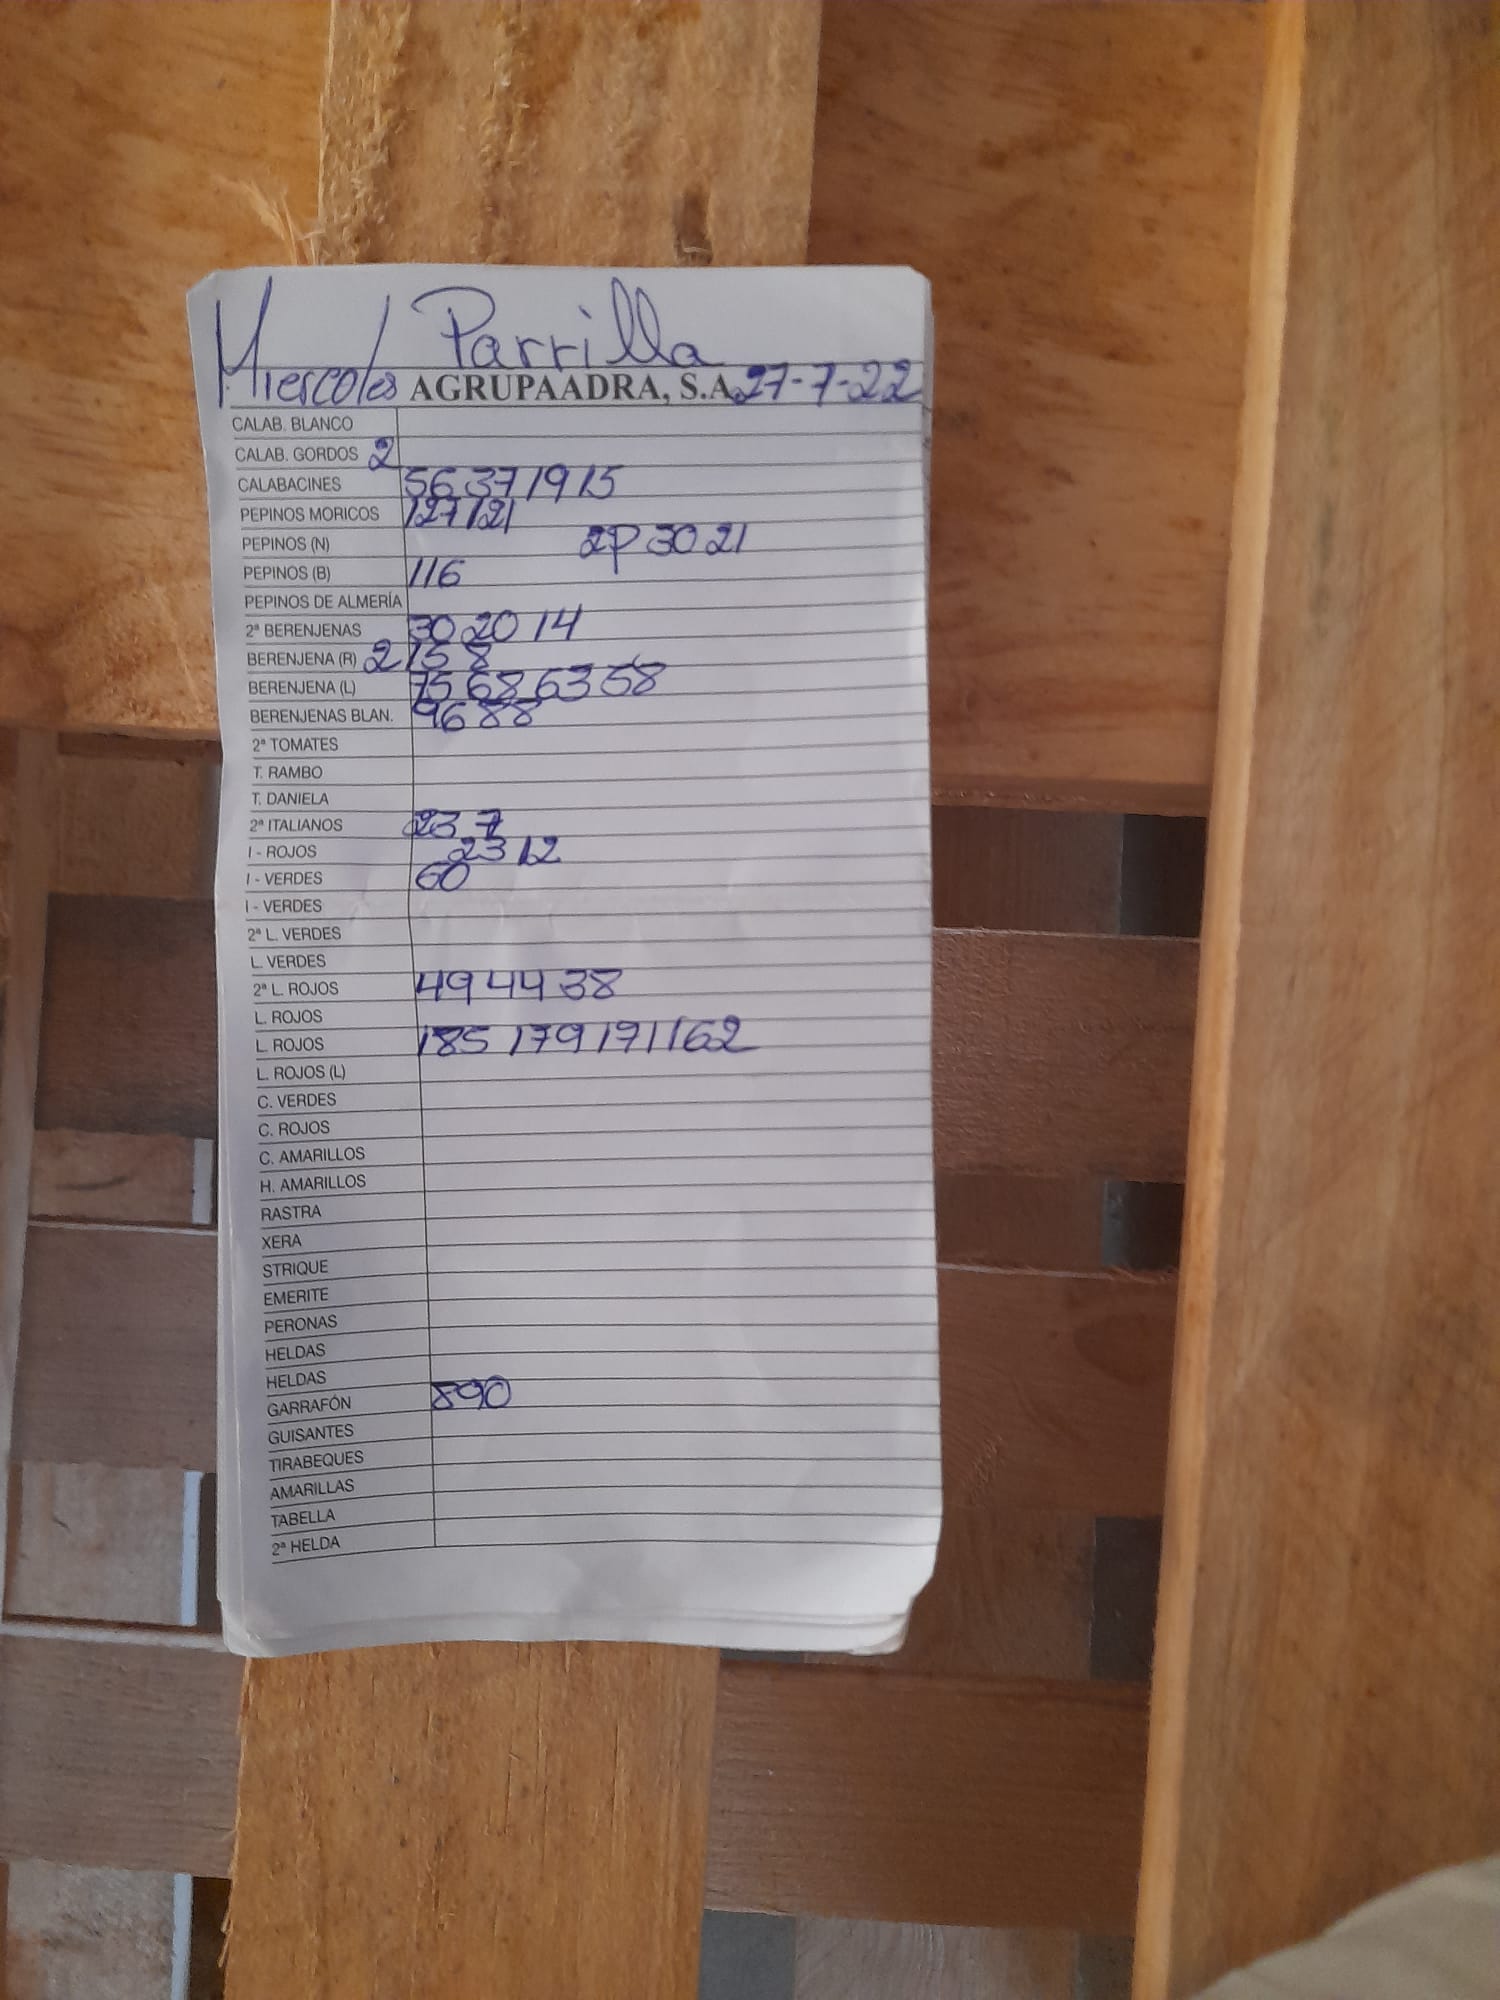 Parrilla
Miercoles AGRUPAADRA, S.A. 27-7-22
CALAB. BLANCO
CALAB. GORDOS 2
CALABACINES 56 37 19 15
PEPINOS MORICOS 127 121
PEPINOS (N) 2P 30 21
PEPINOS (B) 116
PEPINOS DE ALMERÍA
2ª BERENJENAS 30 20 14
BERENJENA (R) 2 15 8
BERENJENA (L) 75 68 63 58
BERENJENAS BLAN. 96 88
2ª TOMATES
T. RAMBO
T. DANIELA
2ª ITALIANOS 23 7
I - ROJOS 23 12
I - VERDES 60
I - VERDES
2ª L. VERDES
L. VERDES
2ª L. ROJOS 49 44 38
L. ROJOS
L. ROJOS 185 179 171 162
L. ROJOS (L)
C. VERDES
C. ROJOS
C. AMARILLOS
H. AMARILLOS
RASTRA
XERA
STRIQUE
EMERITE
PERONAS
HELDAS
HELDAS
GARRAFÓN 890
GUISANTES
TIRABEQUES
AMARILLAS
TABELLA
2ª HELDA